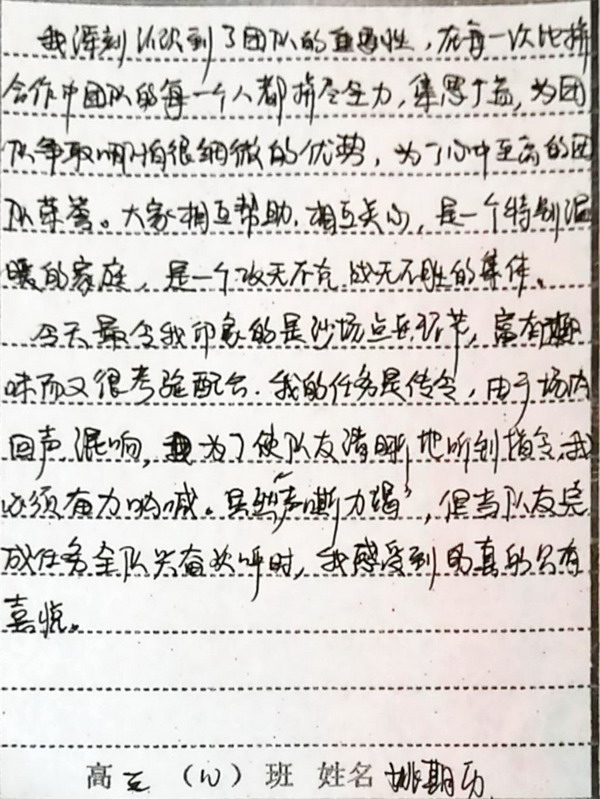 我深刻认识到了团队的重要性，在每一次比拼
合作中团队的每一个人都拼尽全力，集思广益，为团
队争取哪怕很细微的优势，为了心中至高的团
队荣誉。大家相互帮助，相互关心，是一个特别温
暖的家庭，是一个攻无不克战无不胜的集体。
今天最令我印象的是沙场点兵环节，富有趣
味而又很考验配合。我的任务是传令，由于场内
回声混响，为了使队友清晰地听到指令，我
必须奋力呐喊。虽然“声嘶力竭”，但当队友完
成任务全队兴奋欢呼时，我感受到的真的只有
喜悦。
高（）班 姓名 姚期